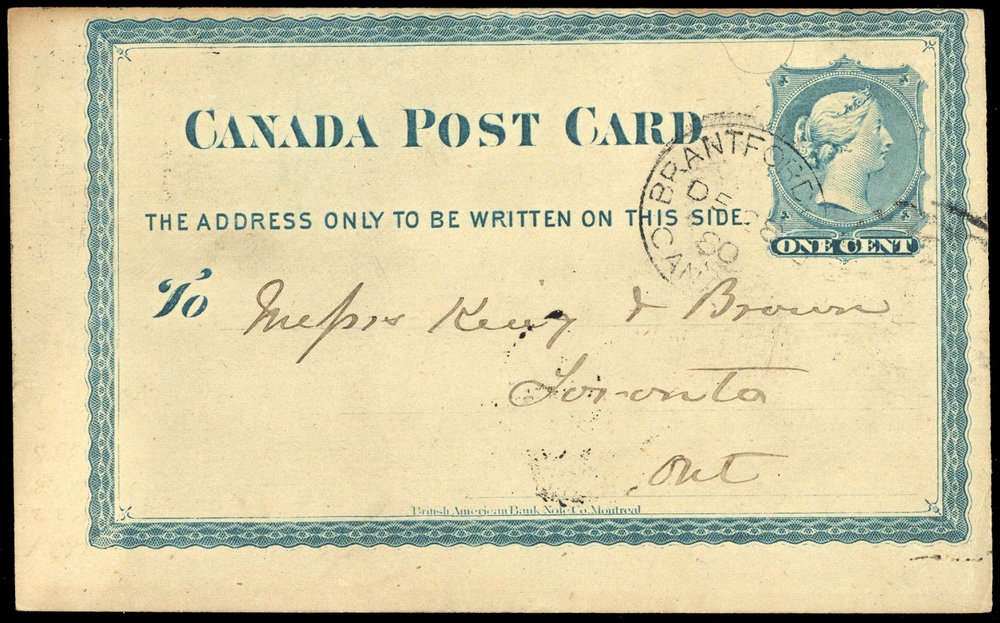 CANADA POST CARD
THE ADDRESS ONLY TO BE WRITTEN ON THIS SIDE.
ONE CENT
BRANTFORD
DE 8
80
CAN
To Messrs King & Brown
Toronto
Ont
British American Bank Note Co. Montreal